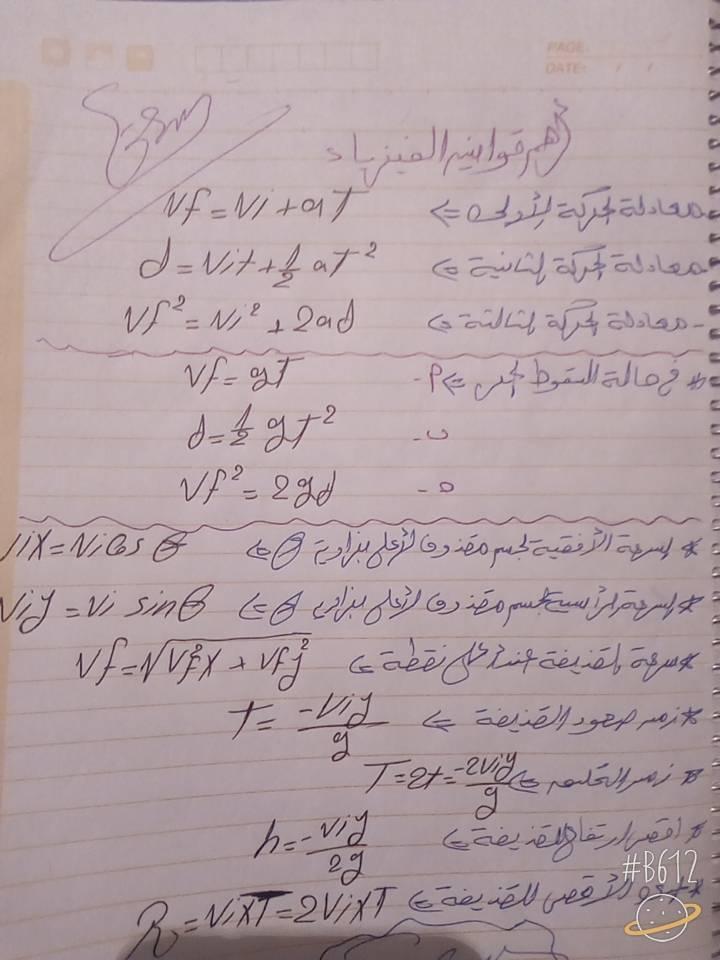 PAGE:
DATE: / /
أهم قوانين الفيزياء
معادلة الحركة الأولى <= Vf = Vi + aT
معادلة الحركة الثانية <= d = Vit + 1/2 aT²
- معادلة الحركة الثالثة <= Vf² = Vi² + 2ad
* في حالة السقوط الحر <= م- Vf = gT
ب- d = 1/2 gT²
ه- Vf² = 2gd
* السرعة الأفقية لجسم مقذوف لأعلى بزاوية θ <= Vix = Vi Cos θ
* السرعة الرأسية لجسم مقذوف لأعلى بزاوية θ <= Viy = Vi sin θ
* سرعة المقذيفة عند أعلى نقطة <= Vf = √Vf²x + Vfy²
* زمن صعود القذيفة <= T = -Viy/g
* زمن التحليق <= T = 2t = -2Viy/g
* أقصى ارتفاع للقذيفة <= h = -Viy/2g
* المدى الأقصى للقذيفة <= R = VixT = 2VixT
#B612